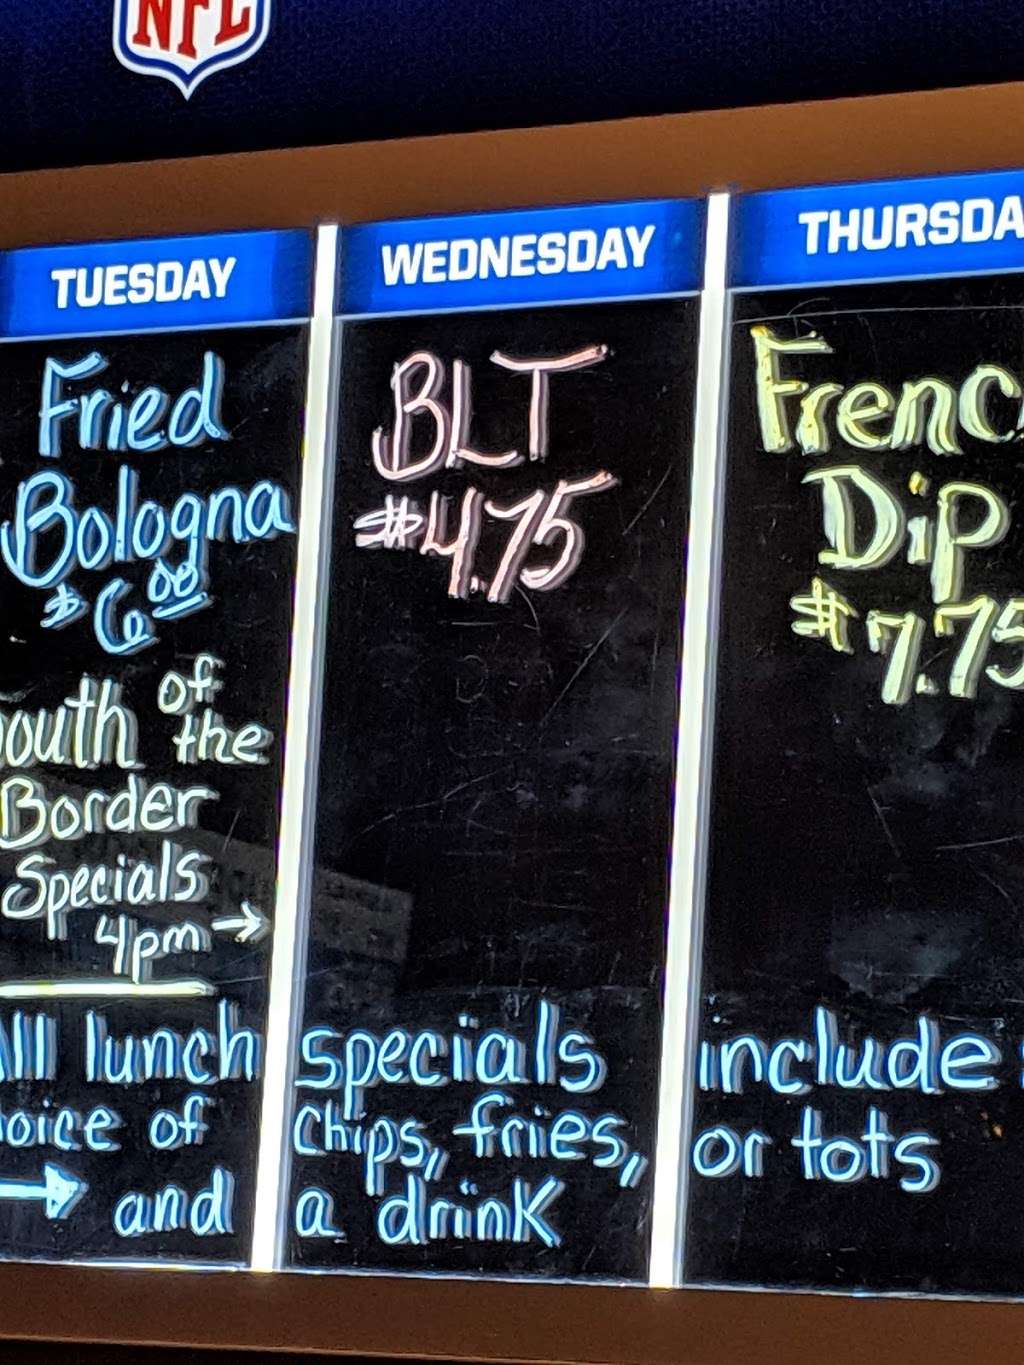 NFL
TUESDAY
Fried
Bologna
$6.00
South of
the
Border
Specials
4pm →
WEDNESDAY
BLT
$4.75
THURSDA
Frenc
Dip
$7.75
All lunch specials include
hoice of chips, fries, or tots
→ and a drink